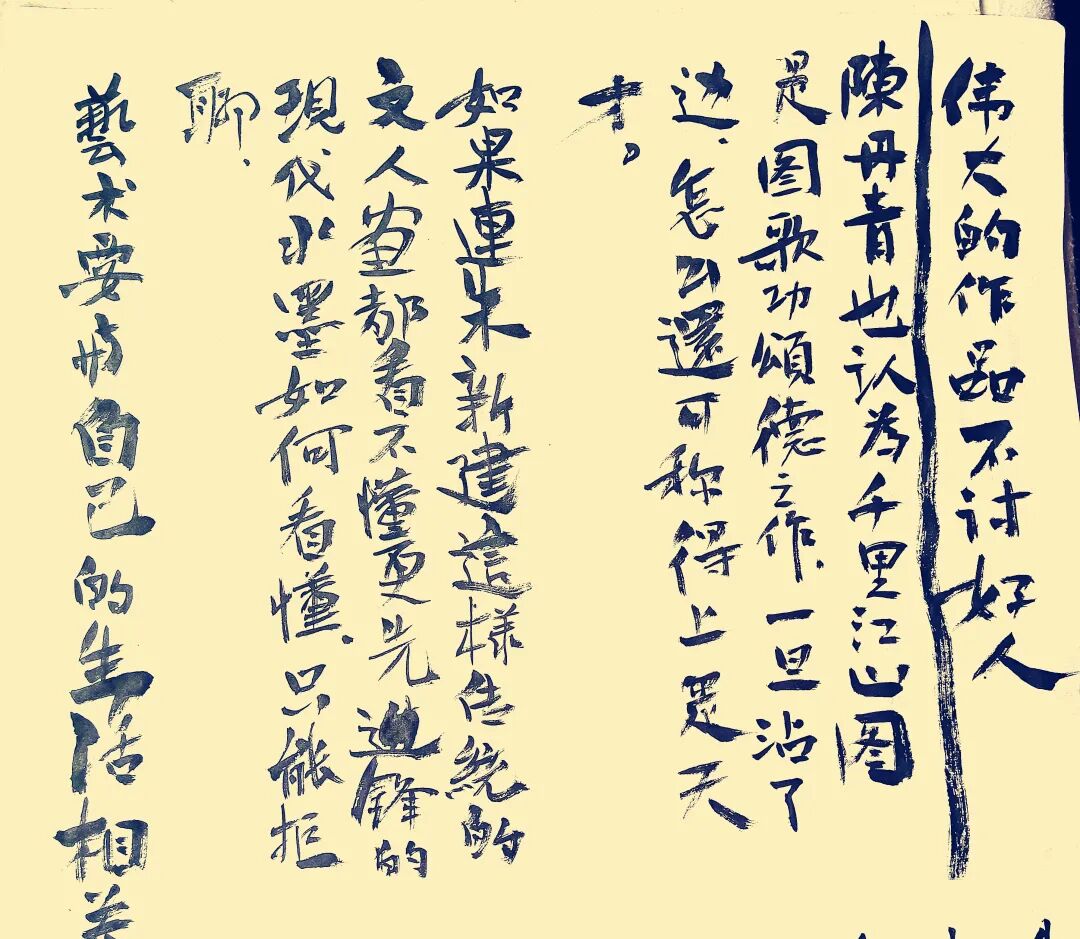 伟大的作品不讨好人
陳丹青也认为千里江山图
是图歌功頌德之作、一旦沾了
边、怎么還可称得上是天
才。
如果連朱新建這様传統的
文人画都看不懂更先進鋒的
現代水墨如何看懂、只能拒
聊、
藝术要与自己的生活相关